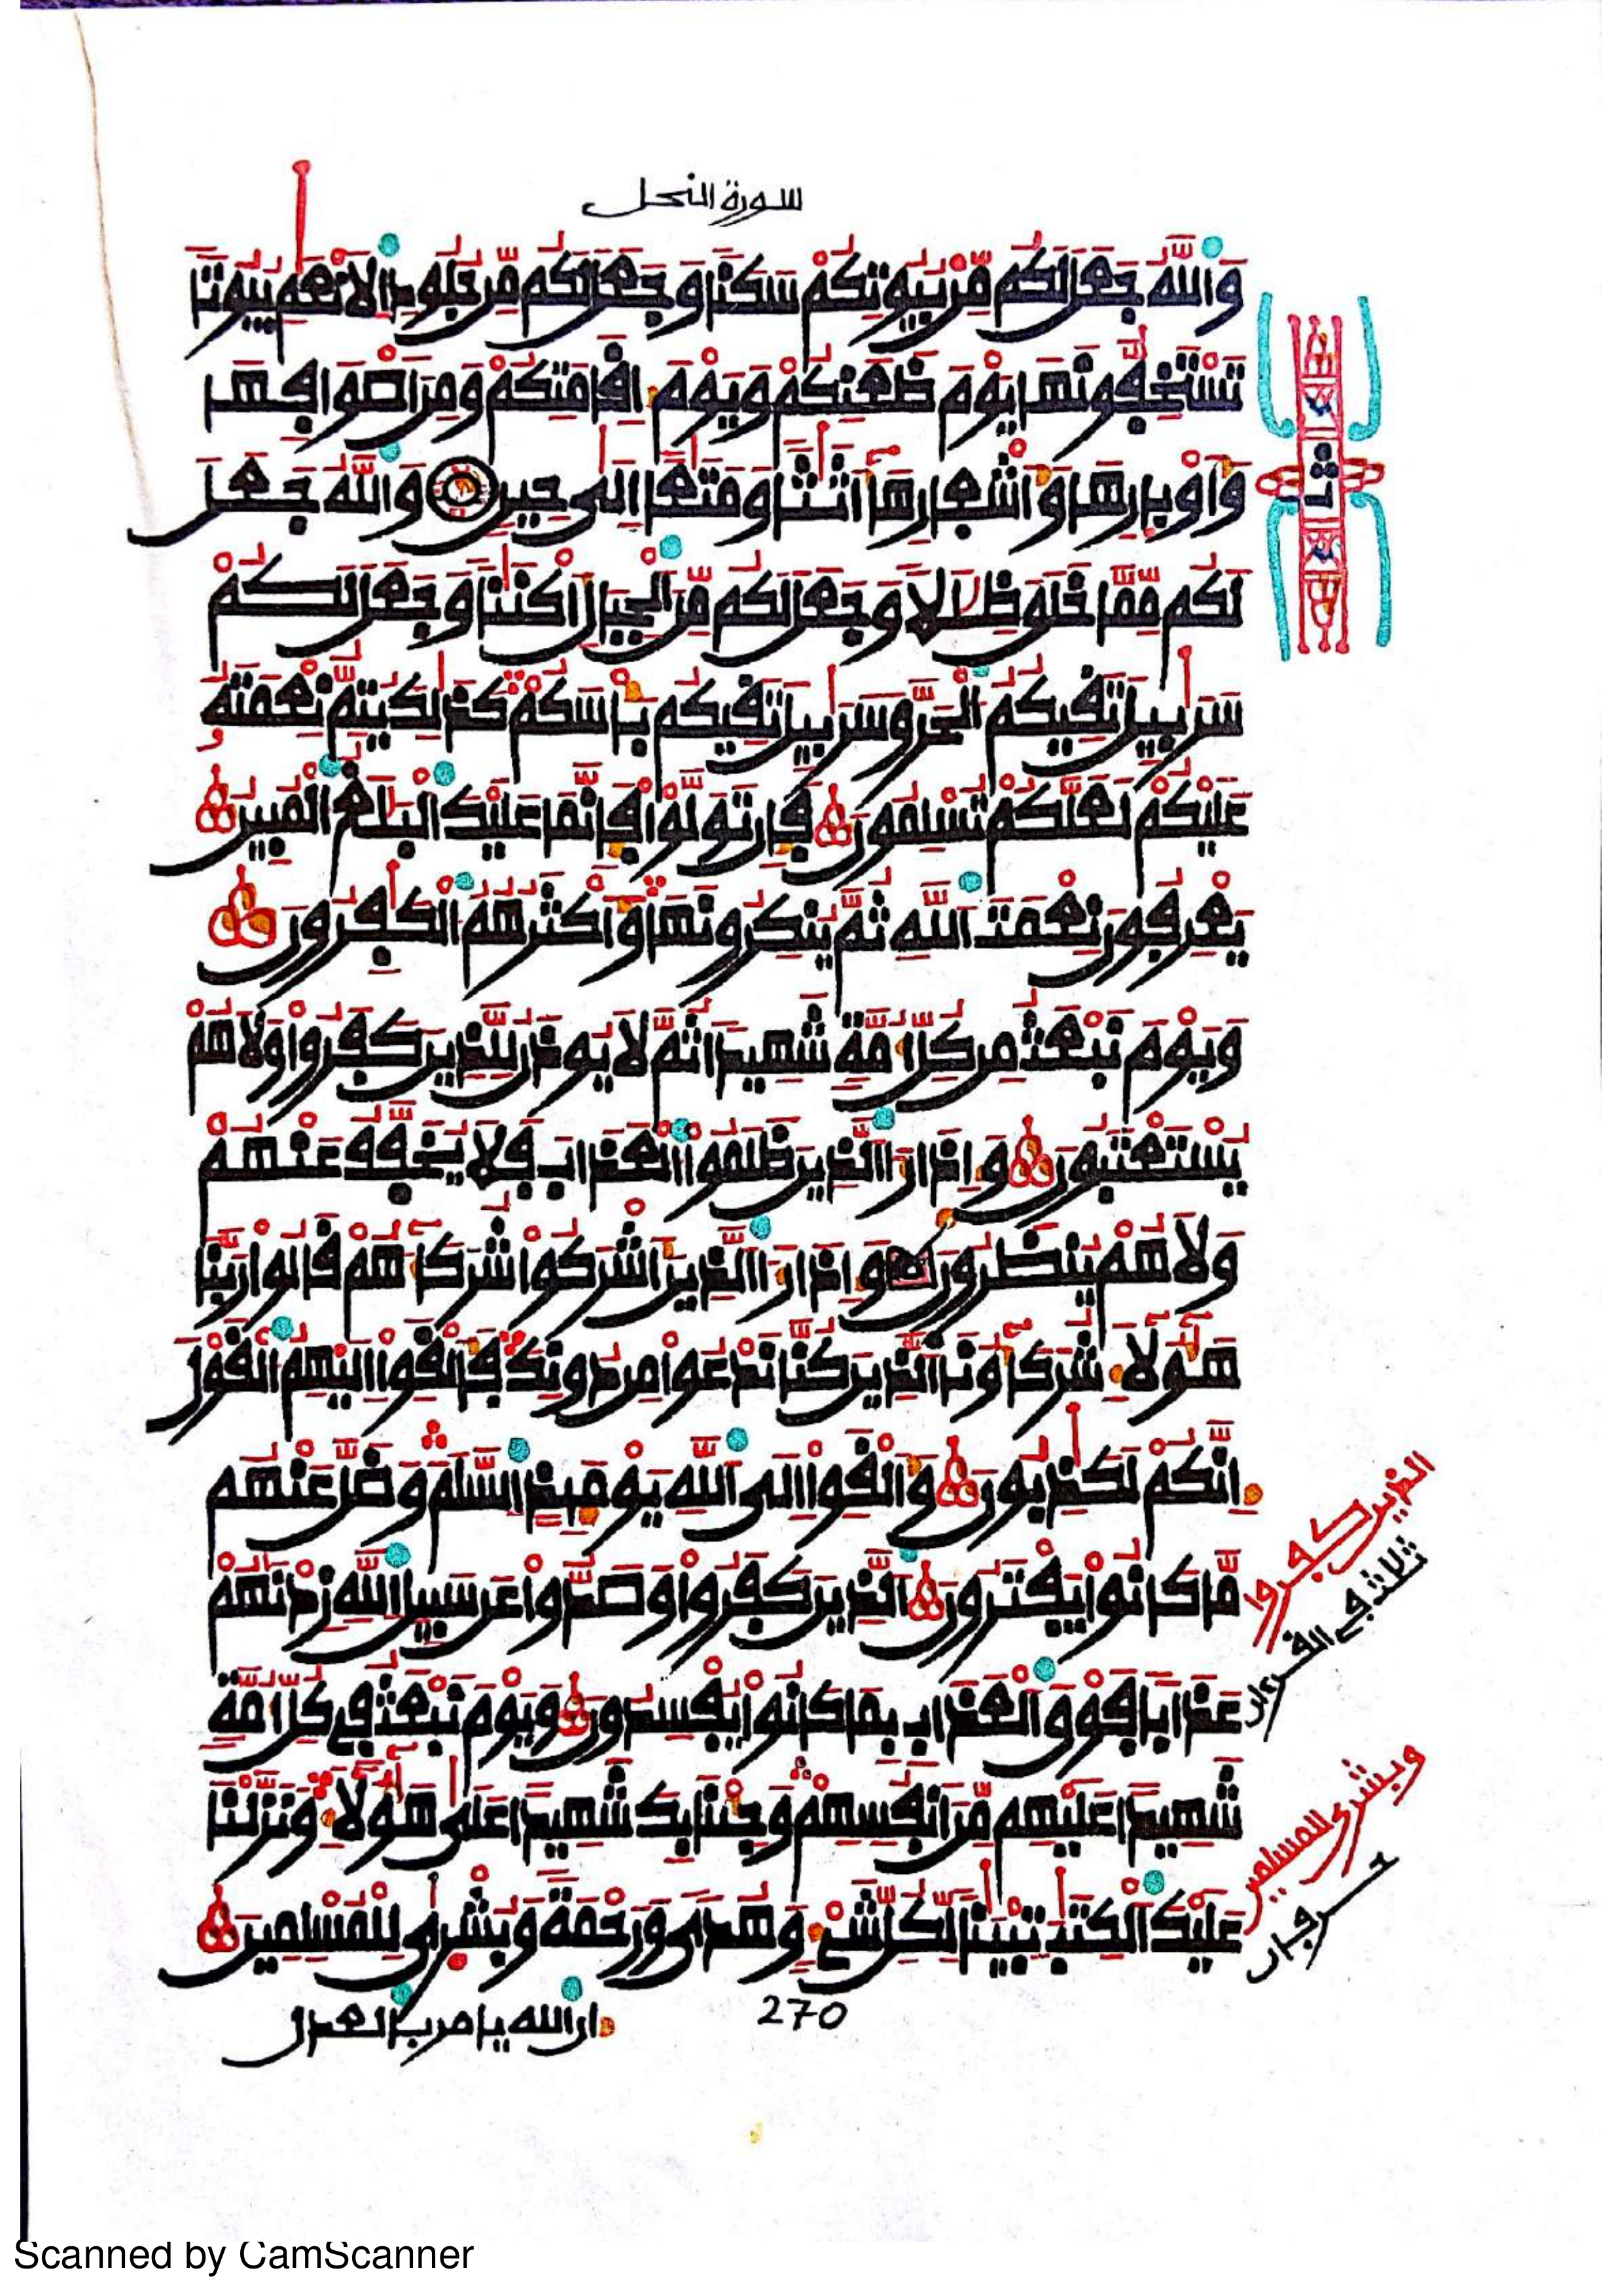 سورة النحل
وَاللَّهُ جَعَلَ لَكُم مِّنۢ بُيُوتِكُمْ سَكَنًا وَجَعَلَ لَكُم مِّن جُلُودِ الَانْعَٰمِ بُيُوتًا
تَسْتَخِفُّونَهَا يَوْمَ ظَعَنِكُمْ وَيَوْمَ إِقَامَتِكُمْ وَمِنَ اصْوَافِهَا
وَأَوْبَارِهَا وَأَشْعَارِهَآ أَثَٰثًا وَمَتَٰعًا إِلَىٰ حِينٍ وَاللَّهُ جَعَلَ
لَكُم مِّمَّا خَلَقَ ظِلَٰلًا وَجَعَلَ لَكُم مِّنَ الْجِبَالِ أَكْنَٰنًا وَجَعَلَ لَكُمْ
سَرَٰبِيلَ تَقِيكُمُ الْحَرَّ وَسَرَٰبِيلَ تَقِيكُم بَأْسَكُمْ كَذَٰلِكَ يُتِمُّ نِعْمَتَهُ
عَلَيْكُمْ لَعَلَّكُمْ تُسْلِمُونَ فَإِن تَوَلَّوْا فَإِنَّمَا عَلَيْكَ الْبَلَٰغُ الْمُبِينُ
يَعْرِفُونَ نِعْمَتَ اللَّهِ ثُمَّ يُنكِرُونَهَا وَأَكْثَرُهُمُ الْكَٰفِرُونَ
وَيَوْمَ نَبْعَثُ مِن كُلِّ أُمَّةٍ شَهِيدًا ثُمَّ لَا يُوذَنُ لِلَّذِينَ كَفَرُوا وَلَا هُمْ
يُسْتَعْتَبُونَ وَإِذَا رَءَا الَّذِينَ ظَلَمُوا الْعَذَابَ فَلَا يُخَفَّفُ عَنْهُمْ
وَلَا هُمْ يُنظَرُونَ وَإِذَا رَءَا الَّذِينَ أَشْرَكُوا شُرَكَآءَهُمْ قَالُوا رَبَّنَا
هَٰٓؤُلَآءِ شُرَكَآؤُنَا الَّذِينَ كُنَّا نَدْعُوا مِن دُونِكَ فَأَلْقَوِا الَيْهِمُ الْقَوْلَ
إِنَّكُمْ لَكَٰذِبُونَ وَأَلْقَوِا الَى اللَّهِ يَوْمَئِذٍ السَّلَمَ وَضَلَّ عَنْهُم
مَّا كَانُوا يَفْتَرُونَ الَّذِينَ كَفَرُوا وَصَدُّوا عَن سَبِيلِ اللَّهِ زِدْنَٰهُمْ
عَذَابًا فَوْقَ الْعَذَابِ بِمَا كَانُوا يُفْسِدُونَ وَيَوْمَ نَبْعَثُ فِي كُلِّ أُمَّةٍ
شَهِيدًا عَلَيْهِم مِّنَ انفُسِهِمْ وَجِئْنَا بِكَ شَهِيدًا عَلَىٰ هَٰٓؤُلَآءِ وَنَزَّلْنَا
عَلَيْكَ الْكِتَٰبَ تِبْيَٰنًا لِّكُلِّ شَيْءٍ وَهُدًى وَرَحْمَةً وَبُشْرَىٰ لِلْمُسْلِمِينَ
270
إن الله يامر بالعدل
ثمن
الذين كفروا
ثلاث في القرءان
وبشرى للمسلمين
حرفان
Scanned by CamScanner